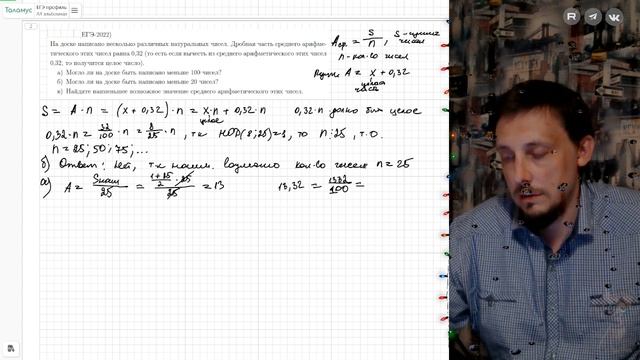 Таламус
ЕГЭ профиль
ЕГЭ-2022)
На доске написано несколько различных натуральных чисел. Дробная часть среднего арифме-
тического этих чисел равна 0,32 (то есть если вычесть из среднего арифметического этих чисел
0,32, то получится целое число).
а) Могло ли на доске быть написано меньше 100 чисел?
б) Могло ли на доске быть написано меньше 20 чисел?
в) Найдите наименьшее возможное значение среднего арифметического этих чисел.
Aср. = S/n, S - сумма чисел
n - кол-во чисел
A = x + 0,32
целая часть
S = A · n = (x + 0,32) · n = x·n + 0,32·n 0,32·n должно быть целое
целое
0,32·n = 32/100 · n = 8/25 · n, т.к НОД(8;25)=1, то n⋮25, т.о.
n = 25; 50; 75; ...
б) Ответ: нет, т.к наим. возможно кол-во чисел n = 25
а) A = Sнаим/25 = (1+25)/2 · 25/25 = 13 13,32 = 1332/100 =